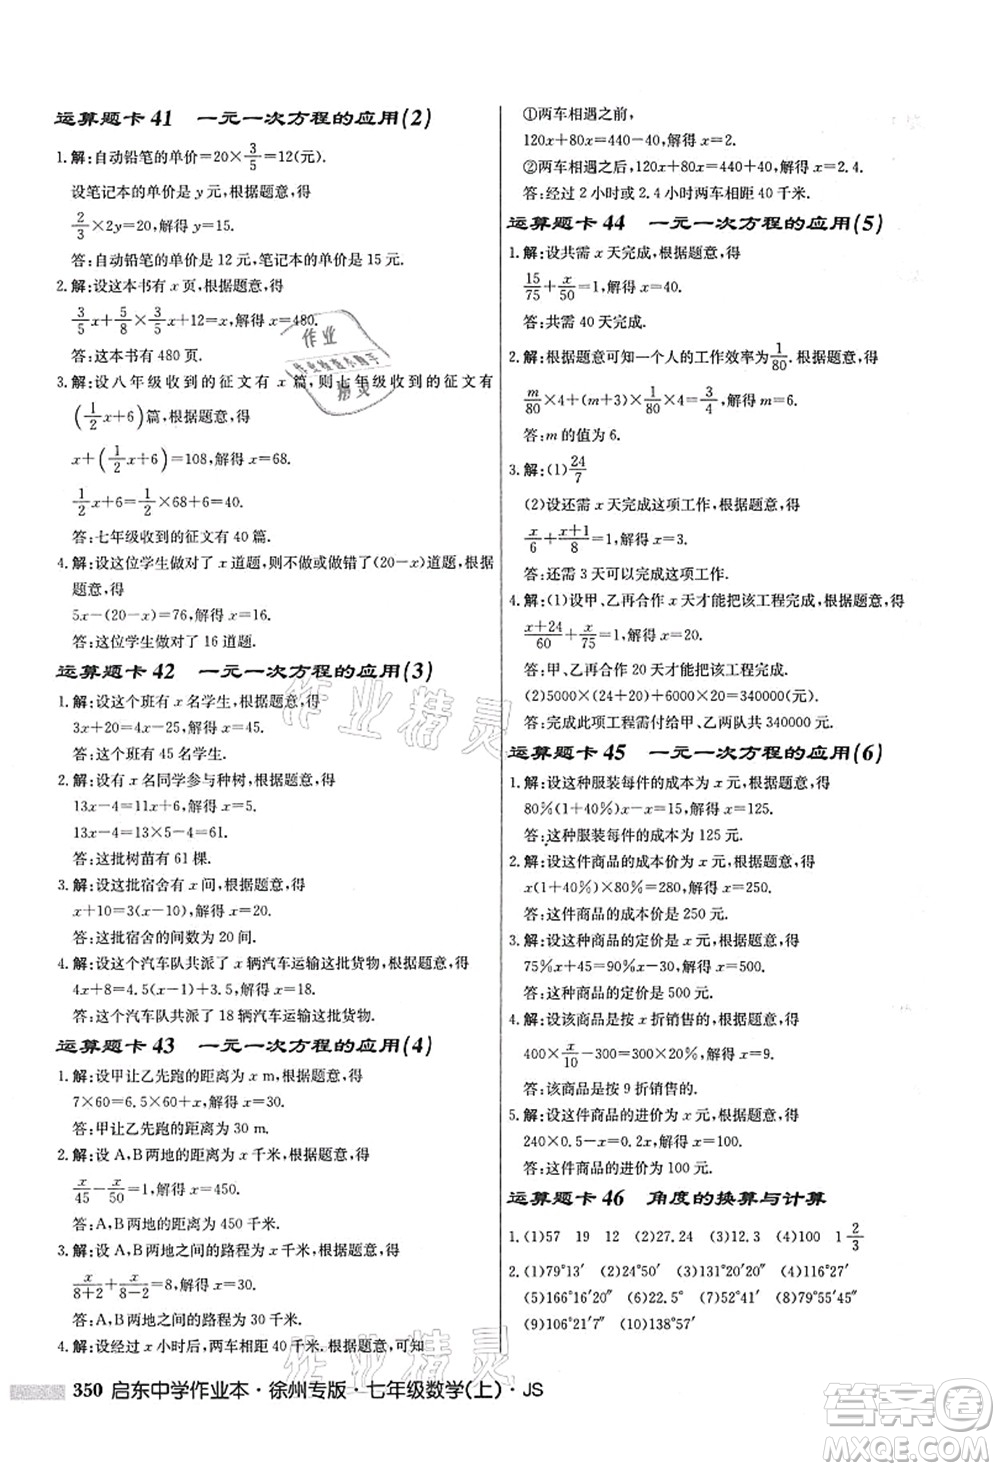 运算题卡 41 一元一次方程的应用(2)
1. 解:自动铅笔的单价=20×3/5=12(元).
设笔记本的单价是 y 元,根据题意,得
2/3×2y=20,解得 y=15.
答:自动铅笔的单价是 12 元,笔记本的单价是 15 元.
2. 解:设这本书有 x 页,根据题意,得
3/5x+5/8×3/5x=x-84,解得 x=480.
答:这本书有 480 页.
3. 解:设八年级收到的征文有 x 篇,则七年级收到的征文有
(1/2x+6)篇,根据题意,得
x+(1/2x+6)=108,解得 x=68.
1/2x+6=1/2×68+6=40.
答:七年级收到的征文有 40 篇.
4. 解:设这位学生做对了 x 道题,则不做或做错了(20-x)道题,根
据题意,得
5x-(20-x)=76,解得 x=16.
答:这位学生做对了 16 道题.
运算题卡 42 一元一次方程的应用(3)
1. 解:设这个班有 x 名学生,根据题意,得
3x+20=4x-25,解得 x=45.
答:这个班有 45 名学生.
2. 解:设有 x 名同学参与种树,根据题意,得
13x-4=11x+6,解得 x=5.
13x-4=13×5-4=61.
答:这批树苗有 61 棵.
3. 解:设这批宿舍有 x 间,根据题意,得
x+10=3(x-10),解得 x=20.
答:这批宿舍的间数为 20 间.
4. 解:设这个汽车队共派了 x 辆汽车运输这批货物,根据题意,得
4x+8=4.5(x-1)+3.5,解得 x=18.
答:这个汽车队共派了 18 辆汽车运输这批货物.
运算题卡 43 一元一次方程的应用(4)
1. 解:设甲让乙先跑的距离为 x m,根据题意,得
7×60=6.5×60+x,解得 x=30.
答:甲让乙先跑的距离为 30 m.
2. 解:设 A,B 两地的距离为 x 千米,根据题意,得
x/45-x/50=1,解得 x=450.
答:A,B 两地的距离为 450 千米.
3. 解:设 A,B 两地之间的路程为 x 千米,根据题意,得
x/(8+2)+x/(8-2)=8,解得 x=30.
答:A,B 两地之间的路程为 30 千米.
4. 解:设经过 x 小时后,两车相距 40 千米,根据题意,可知
①两车相遇之前,
120x+80x=440-40,解得 x=2.
②两车相遇之后,120x+80x=440+40,解得 x=2.4.
答:经过 2 小时或 2.4 小时两车相距 40 千米.
运算题卡 44 一元一次方程的应用(5)
1. 解:设共需 x 天完成,根据题意,得
15/75+x/50=1,解得 x=40.
答:共需 40 天完成.
2. 解:根据题意可知一个人的工作效率为1/80,根据题意,得
m/80×4+(m+3)×1/80×4=3/4,解得 m=6.
答:m 的值为 6.
3. 解:(1)24/7
(2)设还需 x 天完成这项工作,根据题意,得
x/6+(x+1)/8=1,解得 x=3.
答:还需 3 天可以完成这项工作.
4. 解:(1)设甲、乙再合作 x 天才能把该工程完成,根据题意,得
(x+24)/60+x/75=1,解得 x=20.
答:甲、乙再合作 20 天才能把该工程完成.
(2)5000×(24+20)+6000×20=340000(元).
答:完成此项工程需付给甲、乙两队共 340000 元.
运算题卡 45 一元一次方程的应用(6)
1. 解:设这种服装每件的成本为 x 元,根据题意,得
80%(1+40%)x-x=15,解得 x=125.
答:这种服装每件的成本为 125 元.
2. 解:设这件商品的成本价为 x 元,根据题意,得
x(1+40%)×80%=224,解得 x=200.
答:这件商品的成本价是 200 元.
3. 解:设这种商品的定价是 x 元,根据题意,得
75%x+25=90%x-50,解得 x=500.
答:这种商品的定价是 500 元.
4. 解:设该商品是按 x 折销售的,根据题意,得
400×x/10-300=300×20%,解得 x=9.
答:该商品是按 9 折销售的.
5. 解:设这件商品的进价为 x 元,根据题意,得
240×0.5-x=0.2x,解得 x=100.
答:这件商品的进价为 100 元.
运算题卡 46 角度的换算与计算
1. (1)57 19 12 (2)27.24 (3)38.15 (4)90 1 2/3
2. (1)79°13′ (2)31°46′50″ (3)151°30′ (4)116°27′
(5)166°16′20″ (6)31°51′ (7)11°11′ (8)79°55′45″
(9)106°21′7″ (10)66°53′
350 启东中学作业本·徐州专版·七年级数学(上)·JS
作业
作业检查小帮手
作业精灵
作业精灵
答案圈
MXQE.COM